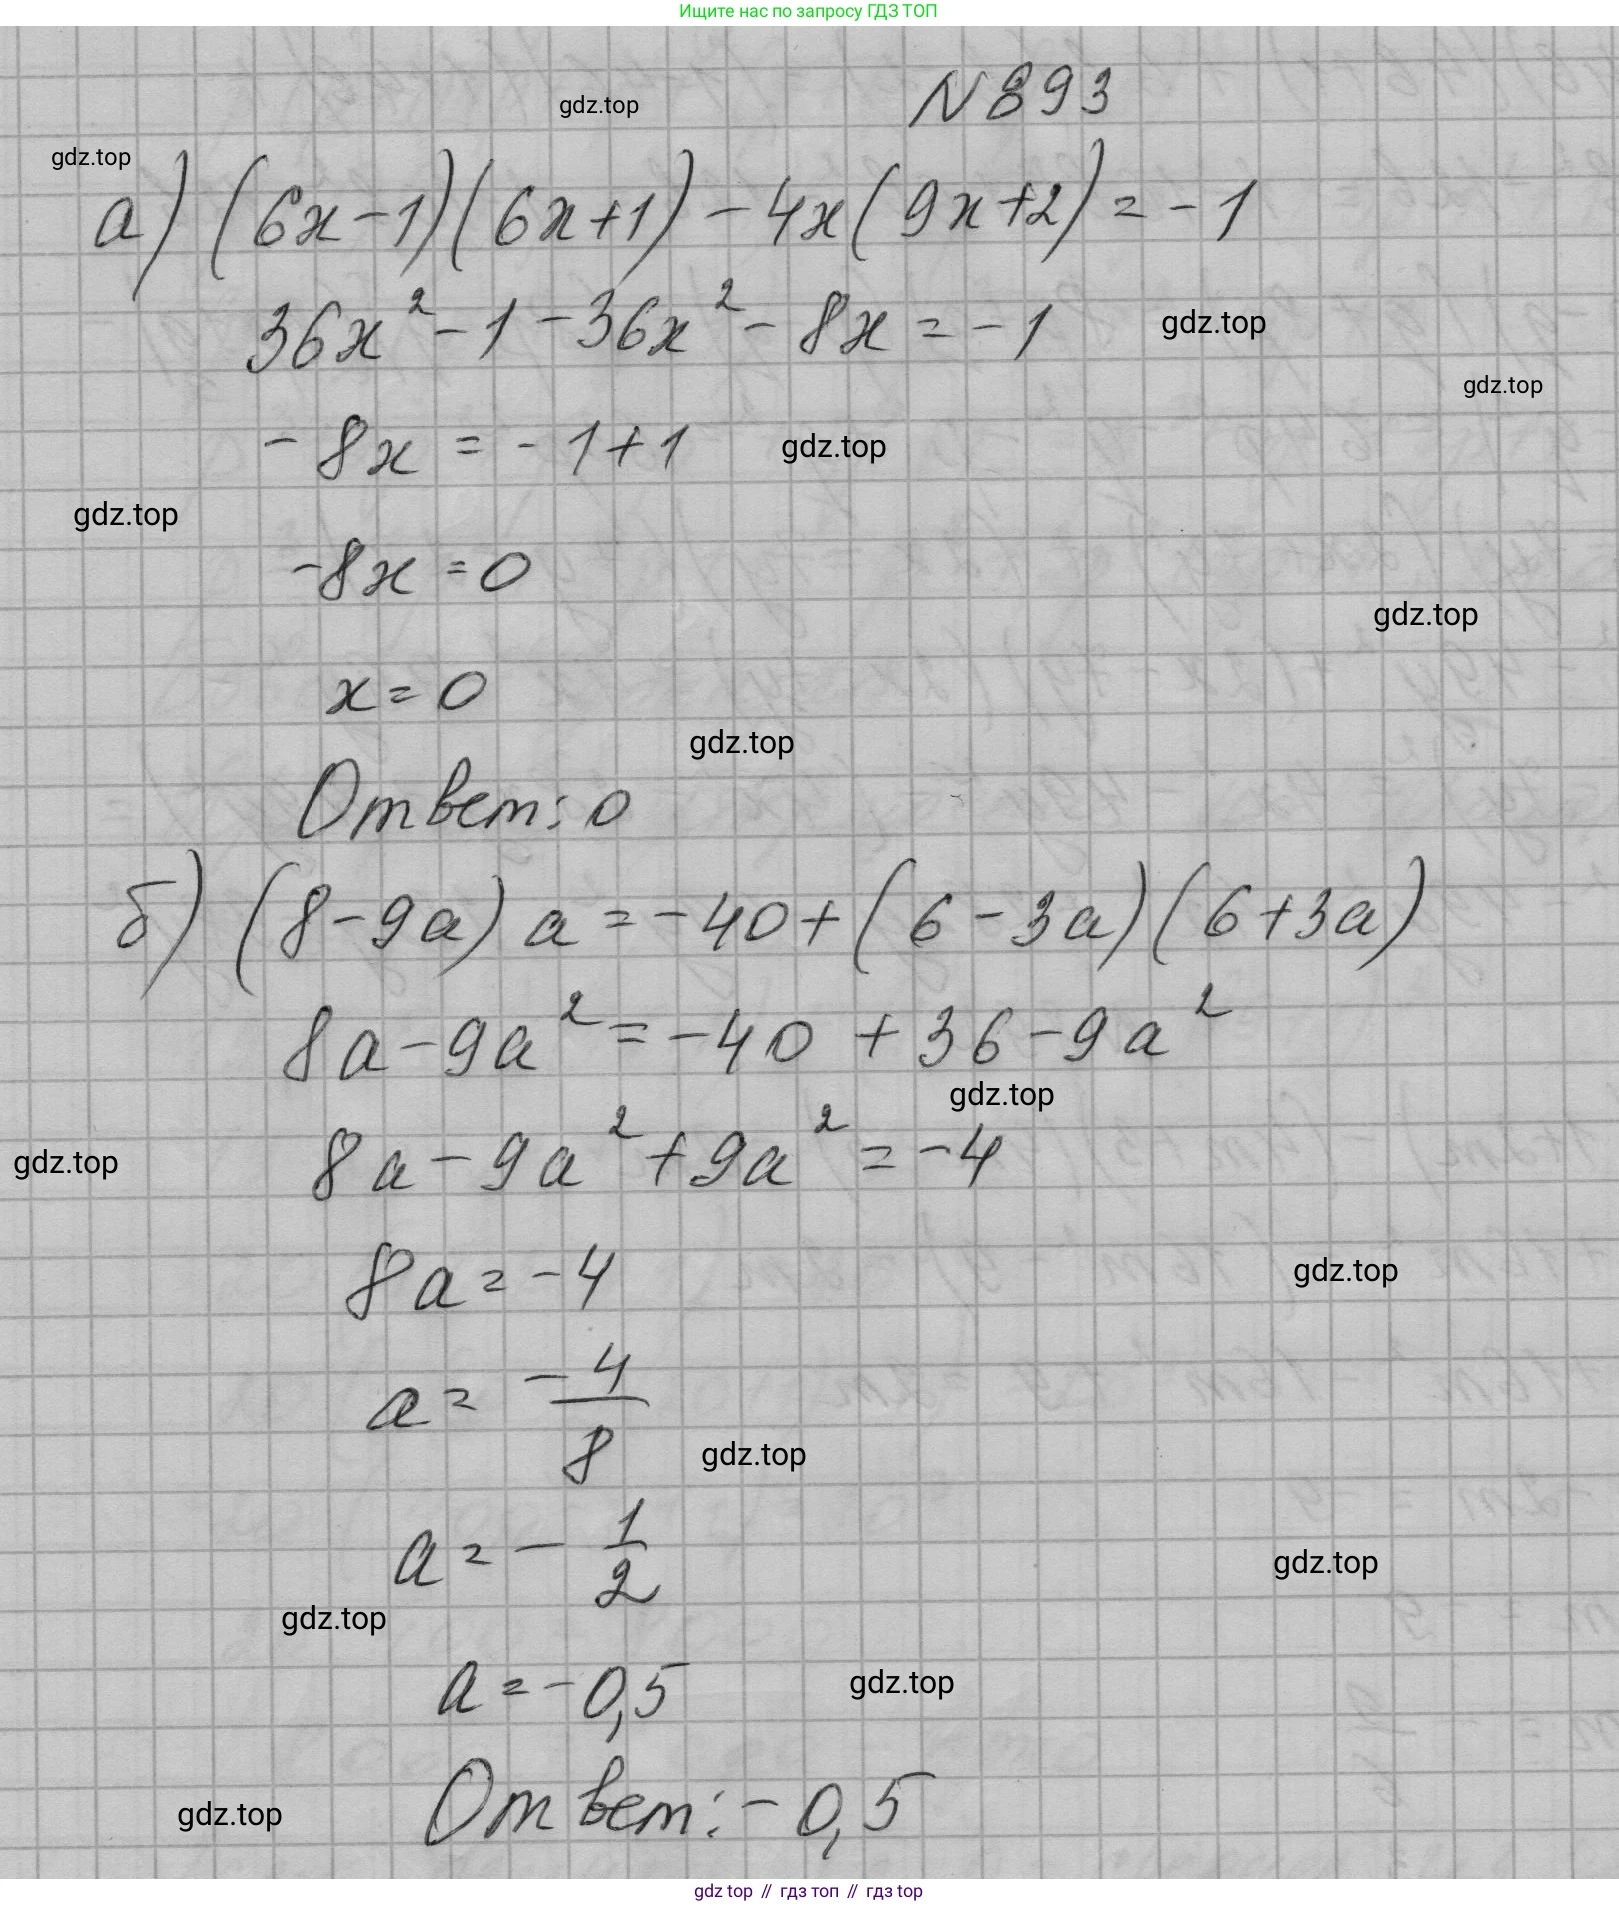 Ищите нас по запросу ГДЗ ТОП
N 893
gdz.top
gdz.top
а) (6x-1)(6x+1)-4x(9x+2)=-1
36x²-1-36x²-8x=-1
gdz.top
gdz.top
-8x=-1+1
gdz.top
gdz.top
-8x=0
gdz.top
x=0
gdz.top
Ответ: 0
б) (8-9a)a=-40+(6-3a)(6+3a)
8a-9a²=-40+36-9a²
gdz.top
8a-9a²+9a²=-4
gdz.top
8a=-4
gdz.top
a=-4/8
gdz.top
a=-1/2
gdz.top
gdz.top
a=-0,5
gdz.top
Ответ: -0,5
gdz.top
gdz top // гдз топ // гдз top